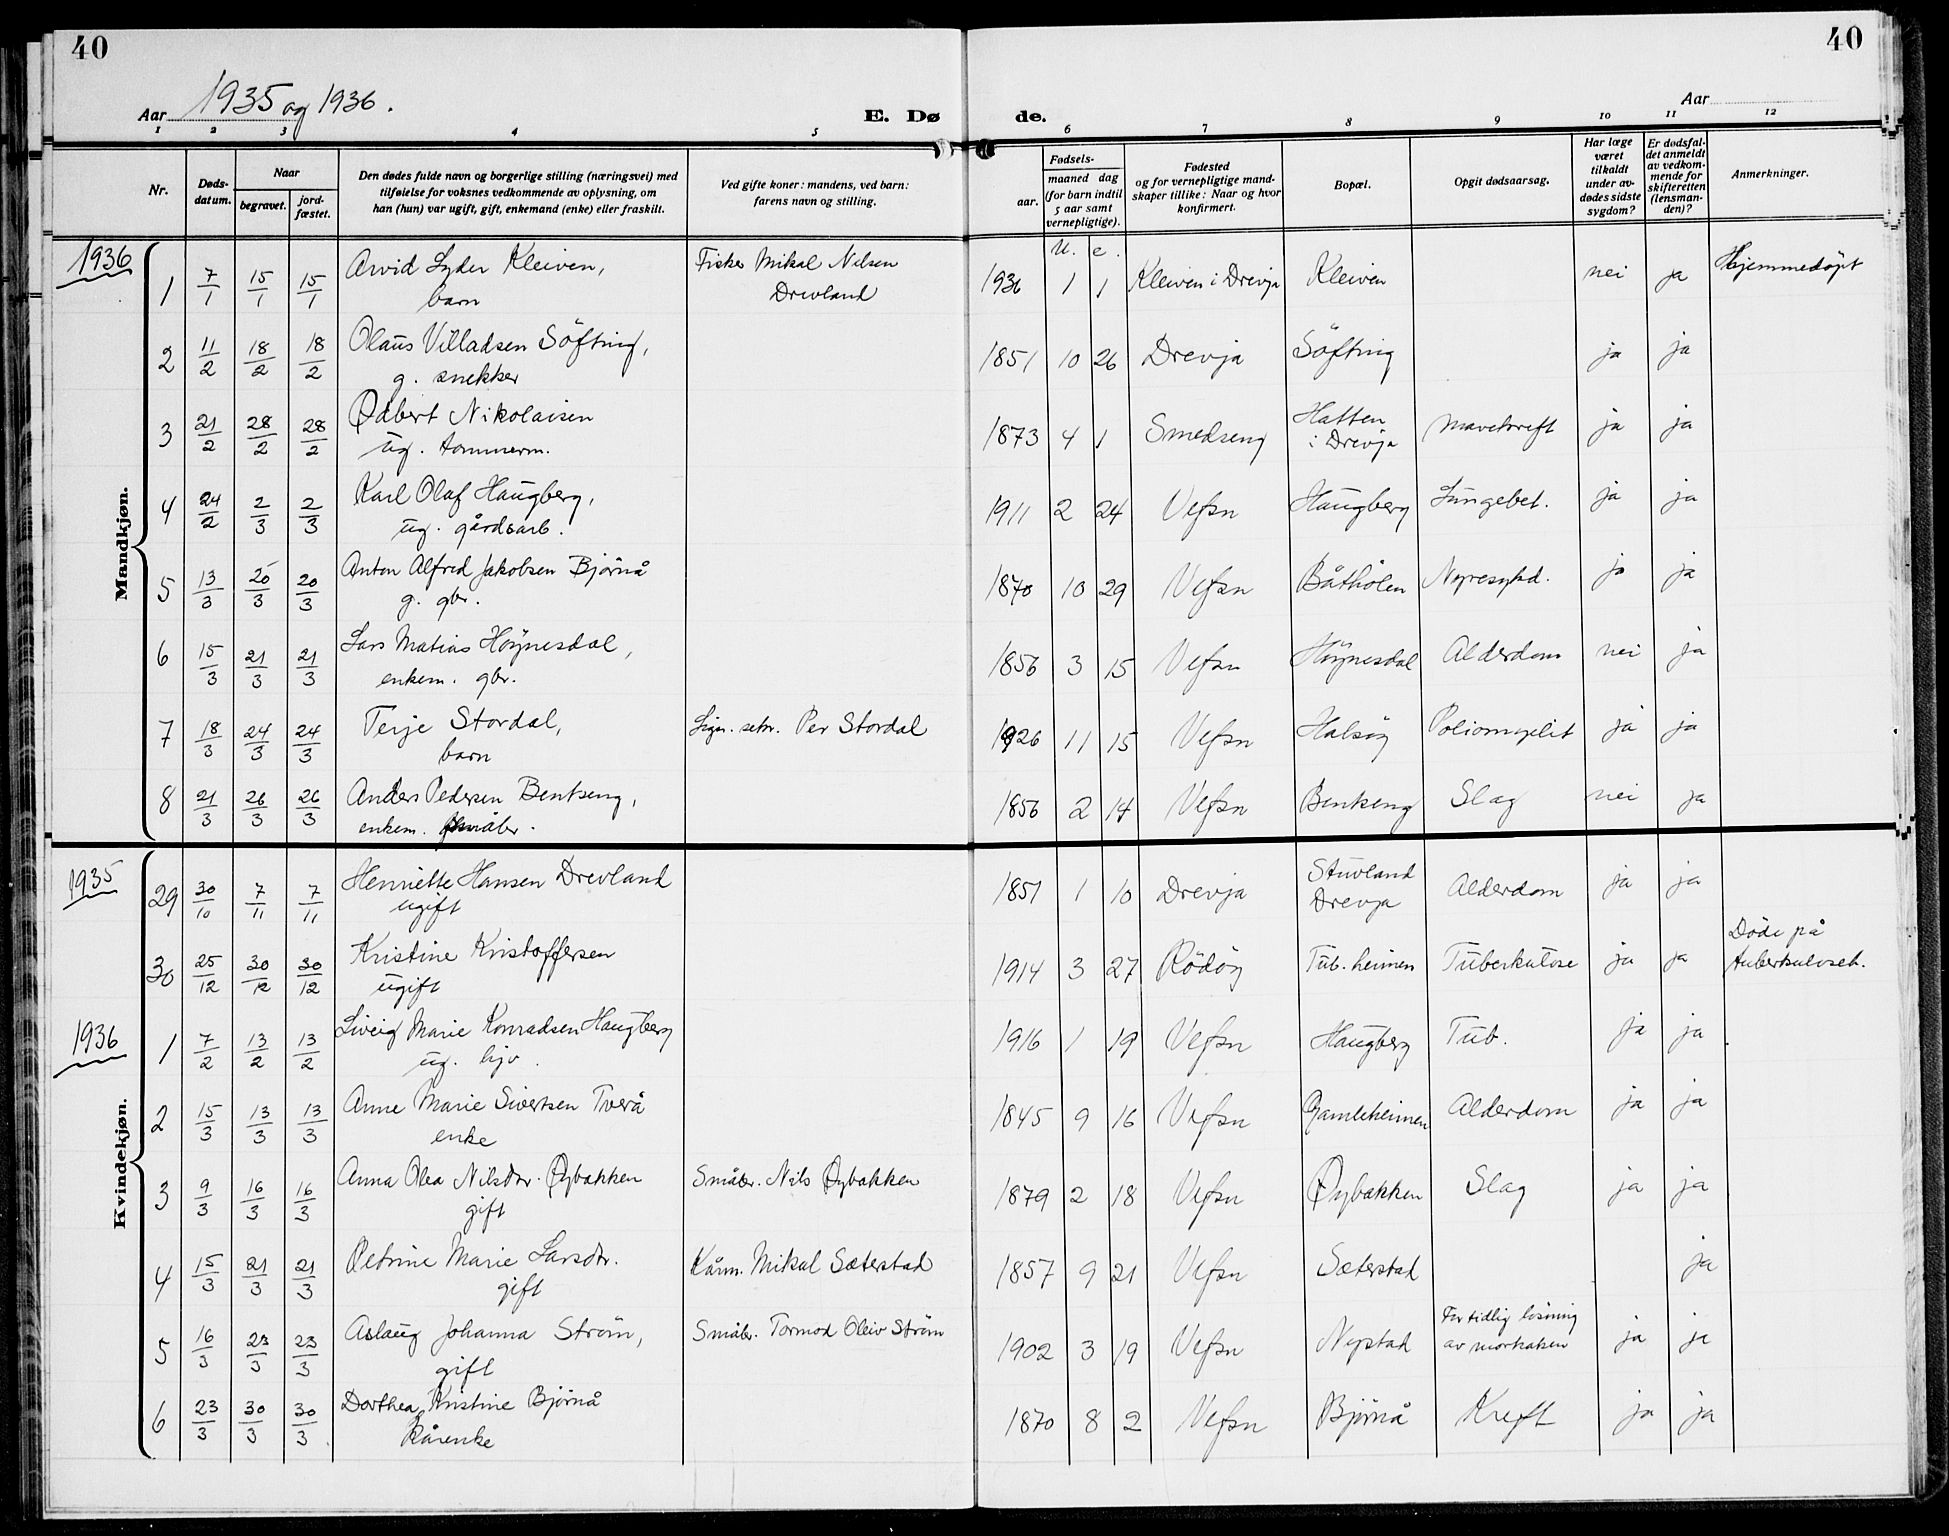 40
40
Aar 1935 og 1936.
E. Dø
de.
Aar
1 2 3 4 5 6 7 8 9 10 11 12
Nr.
Døds-
datum.
Naar
begravet.
jord-
fæstet.
Den dødes fulde navn og borgerlige stilling (næringsvei) med
tilføielse for voksnes vedkommende av oplysning, om
han (hun) var ugift, gift, enkemand (enke) eller fraskilt.
Ved gifte koner: mandens, ved barn:
farens navn og stilling.
Fødsels-
aar.
maaned dag
(for barn indtil
5 aar samt
vernepligtige).
Fødested
og for vernepligtige mand-
skaper tillike: Naar og hvor
konfirmert.
Bopæl.
Opgit dødsaarsag.
Har læge
været
tilkaldt
under av-
dødes sidste
sygdom?
Er dødsfal-
det anmeldt
av vedkom-
mende for
skifteretten
(lensman-
den)?
Anmerkninger.
Mandkjøn.
1936
1 7/1 15/1 15/1 Arvid Lyder Kleiven, Fisker Mikal Nilsen 1936 1 1 Kleiven i Drevja Kleiven nei ja Hjemmedöpt
barn Drevland
2 11/2 18/2 18/2 Olaus Villadsen Söfting, 1851 10 26 Drevja Söfting ja ja
g. snekker
3 21/2 28/2 28/2 Odbert Nikolaisen 1873 4 1 Smedseng Hatten i Drevja Mavekreft ja ja
ug. tommerm.
4 24/2 2/3 2/3 Karl Olaf Haugberg, 1911 2 24 Vefsn Haugberg Lungebet. ja ja
ug. gårdsarb.
5 13/3 20/3 20/3 Anton Alfred Jakobsen Björnå 1870 10 29 Vefsn Båthölen Nyresykd. ja ja
g. gbr.
6 15/3 21/3 21/3 Lars Matias Höynesdal, 1856 3 15 Vefsn Höynesdal Alderdom nei ja
enkem. gbr.
7 18/3 24/3 24/3 Terje Stordal, Lign. sekr. Per Stordal 1926 11 15 Vefsn Halsöy Poliomyelit ja ja
barn
8 21/3 26/3 26/3 Anders Pedersen Bentseng, 1856 2 14 Vefsn Benkeng Slag nei ja
enkem. småbr.
Kvindekjøn.
1935
29 30/10 7/11 7/11 Henriette Hansen Drevland 1851 1 10 Drevja Stuvland Drevja Alderdom ja ja
ugift
30 25/12 30/12 30/12 Kristine Kristoffersen 1914 3 27 Rödöy Tub. heimen Tuberkulose ja ja Döde på tuberkuloseh.
ugift
1936
1 7/2 13/2 13/2 Marie Konradsen Haugberg 1916 1 19 Vefsn Haugberg Tub. ja ja
ug. hjv.
2 15/3 13/3 13/3 Anne Marie Sivertsen Tverå 1845 9 16 Vefsn Gamleheimen Alderdom ja ja
enke
3 9/3 16/3 16/3 Anna Olea Nilsdtr. Øybakken Småbr. Nils Øybakken 1879 2 18 Vefsn Øybakken Slag ja ja
gift
4 15/3 21/3 21/3 Petrine Marie Larsdtr. Kårm. Mikal Sæterstad 1857 9 21 Vefsn Sæterstad ja
gift
5 16/3 23/3 23/3 Aslaug Johanna Ström, Småbr. Tormod Oleiv Ström 1902 3 19 Vefsn Nystad For tidlig lösning av morkaken ja ja
gift
6 23/3 30/3 30/3 Dorthea Kristine Björnå 1870 8 2 Vefsn Björnå Kreft ja ja
kårenke